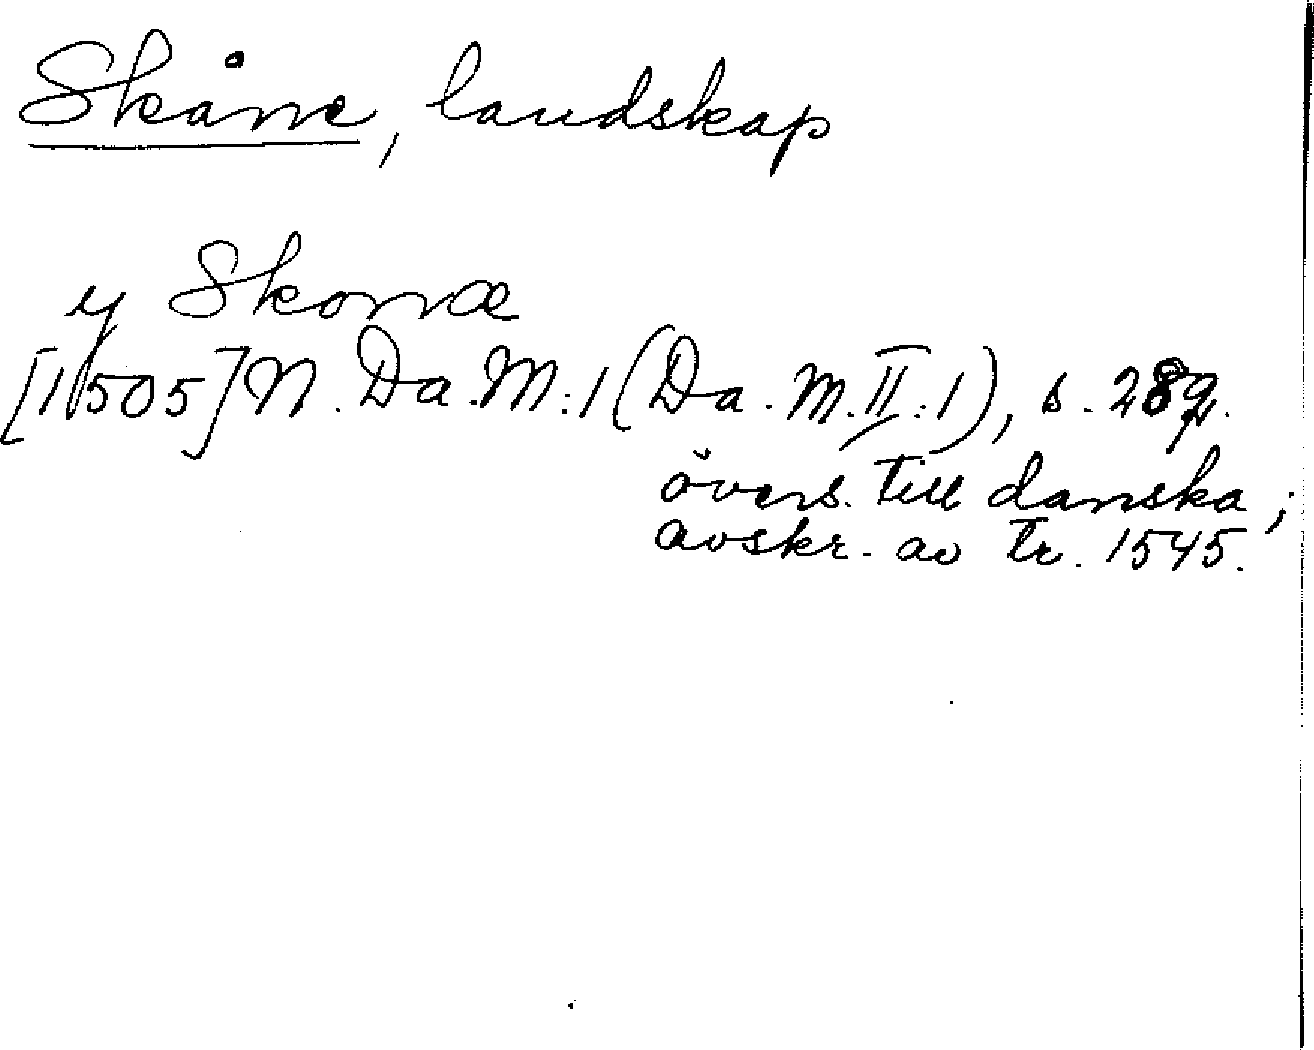 Skåne, landskap
y Skonæ
[1505] N. Da. M.:1 (Da. M. II:1), s. 289.
övers. till danska;
avskr. av Tr. 1545.